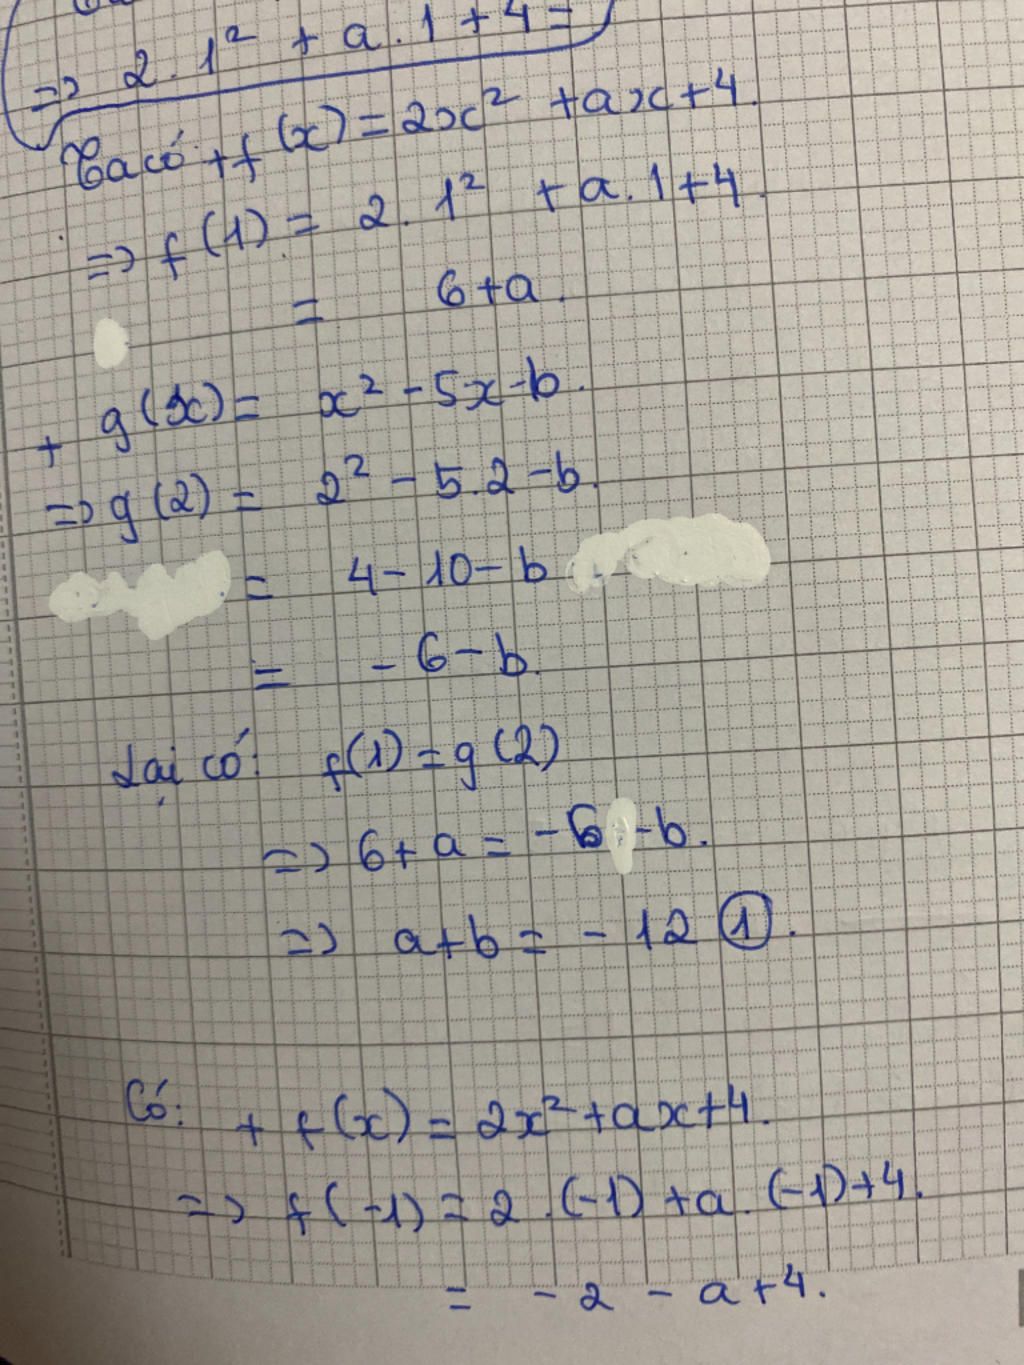 => 2. 1² + a. 1 + 4 =
Ta có + f(x) = 2x² + ax + 4.
=> f(1) = 2. 1² + a. 1 + 4.
= 6 + a.
+ g(x) = x² - 5x - b.
=> g(2) = 2² - 5.2 - b.
= 4 - 10 - b
= - 6 - b.
Lại có: f(1) = g(2)
=> 6 + a = - 6 - b.
=> a + b = - 12 ①.
Có: + f(x) = 2x² + ax + 4.
=> f(-1) = 2. (-1) + a. (-1) + 4.
= - 2 - a + 4.